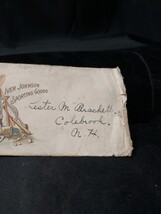 IVER JOHNSON
SPORTING GOODS
Lester M. Brackett.
Colebrook.
N. H.